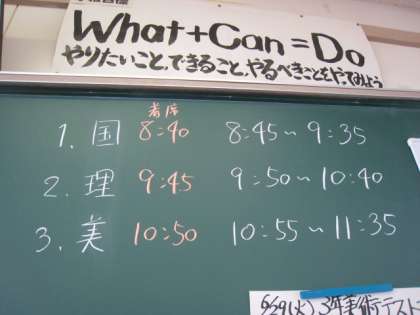 What+Can=Do
やりたいこと、できること、やるべきことをやってみよう
着席
1. 国 8:40 8:45~9:35
2. 理 9:45 9:50~10:40
3. 美 10:50 10:55~11:35
6/29(火) 3年美術テスト